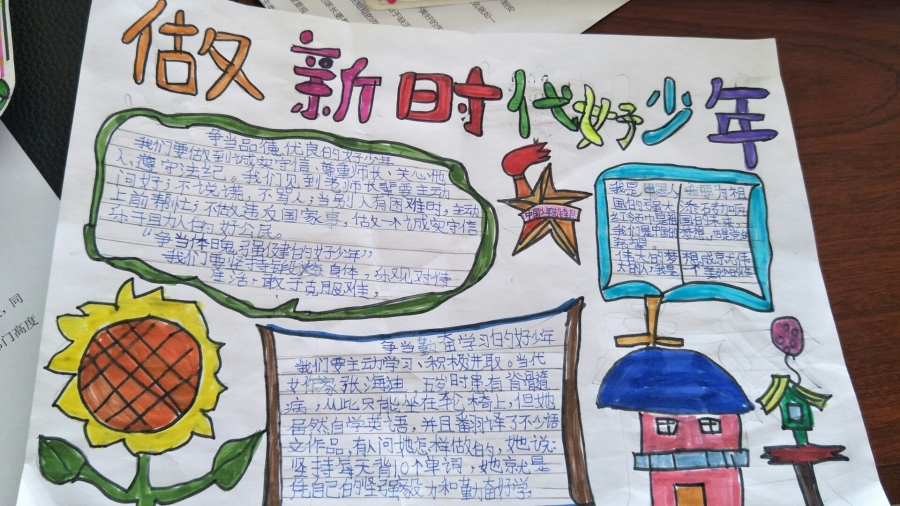 做新时代好少年
争当品德优良的好少年
我们要做到诚实守信、尊重师长、关心他
人、遵守法纪。我们见到老师长辈要主动
问好；不说谎，不骂人；当别人有困难时，主动
上前帮忙；不做违反国家事，做一个诚实守信
乐于助人的好公民。
"争当体魄强健的好少年"
我们要坚持锻炼身体，乐观对待
生活，敢于克服难，
争当勤奋学习的好少年
我们要主动学习、积极进取。当代
女作家张海迪 5岁时患有脊髓
病，从此只能坐在轮椅上，但她
虽然自学英语，并且翻译了不少语
文作品，有人问她怎样做的，她说：
坚持每天背10个单词，她就是
凭自己的坚强毅力和勤奋好学
我是
国的强大
红领巾是
我们是中国的梦想，也是
希望。
伟大的梦想